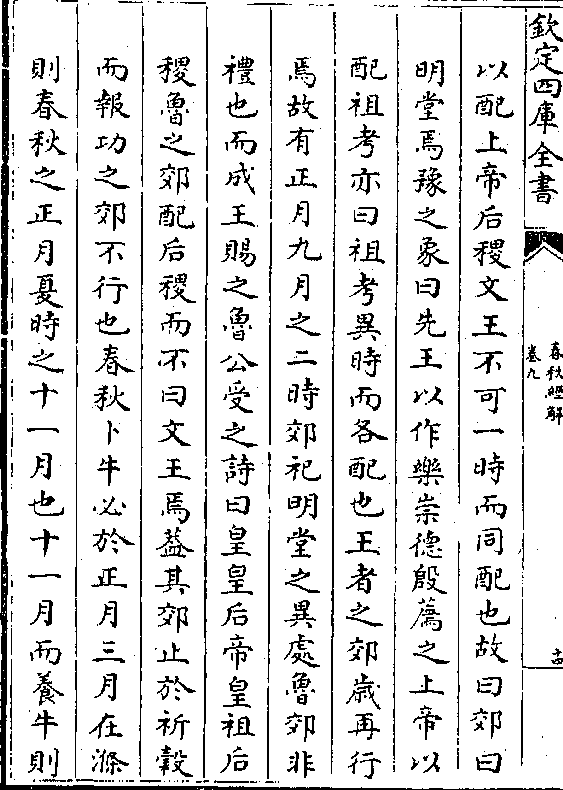 欽定四庫全書
春秋經解
卷九
十四
以配上帝后稷文王不可一時而同配也故曰郊曰
明堂焉豫之象曰先王以作樂崇德殷薦之上帝以
配祖考亦曰祖考異時而各配也王者之郊歲再行
焉故有正月九月之二時郊祀明堂之異處魯郊非
禮也而成王賜之魯公受之詩曰皇皇后帝皇祖后
稷魯之郊配后稷而不曰文王焉葢其郊止於祈穀
而報功之郊不行也春秋卜牛必於正月三月在滌
則春秋之正月夏時之十一月也十一月而養牛則